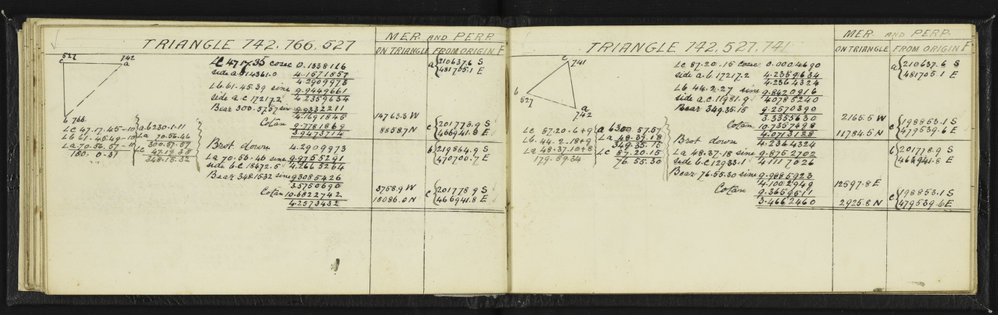 TRIANGLE 742.766.527
MER AND PERP
ON TRIANGLE FROM ORIGIN E
527
742
a
b 766
Lc 47.17.35 cosec 0.1338126
side a.b 14361.0 4.1571857
4.2909973
Lb 61.45.39 sine 9.9449661
side a.c 17217.2 4.2359634
Bear 300.57.57 sine 9.9332211
4.1691845
Cotan 9.7781869
3.9473714
14763.5 W
8858.7 N
a 210637.6 S
481705.1 E
c 201778.9 S
466941.8 E
Lc 47.17.45-10
Lb 61.45.49-10
La 70.56.57-11
180.0.31
a.b 230.1.11
La 70.56.46
300.57.57
Lc 47.17.35
348.15.32
Brot down 4.2909973
La 70.56.46 sine 9.9755291
side b.c 18472.5 4.2665264
Bear 348.1532 sine 9.3085426
3.5750690
Cotan 10.6822742
4.2573432
3758.9 W
18086.0 N
b 219864.9 S
470700.7 E
c 201778.9 S
466941.8 E
TRIANGLE 742.527.741
MER AND PERP
ON TRIANGLE FROM ORIGIN E
c
741
b
527
a
742
Lc 87.20.15 cosec 0.0004690
side a.b 17217.2 4.2359634
4.2364324
Lb 44.2.27 sine 9.8420916
side a.c 11981.9 4.0785240
Bear 349.35.15 9.2570390
3.3355630
Cotan 10.7357498
4.0713128
2165.5 W
11784.5 N
a 210637.6 S
481705.1 E
c 198853.1 S
479539.6 E
Lc 87.20.6+9
Lb 44.2.18+9
La 48.37.10+8
179.59.34
a 6300.57.57
La 48.37.18
349.35.15
Lc 87.20.15
76.55.30
Brot down 4.2364324
La 48.37.18 sine 9.8752702
side b.c 12933.1 4.1117026
Bear 76.55.30 sine 9.9885923
4.1002949
Cotan 9.3659511
3.4662460
12597.8 E
2925.8 N
b 201778.9 S
466941.8 E
c 198853.1 S
479539.6 E